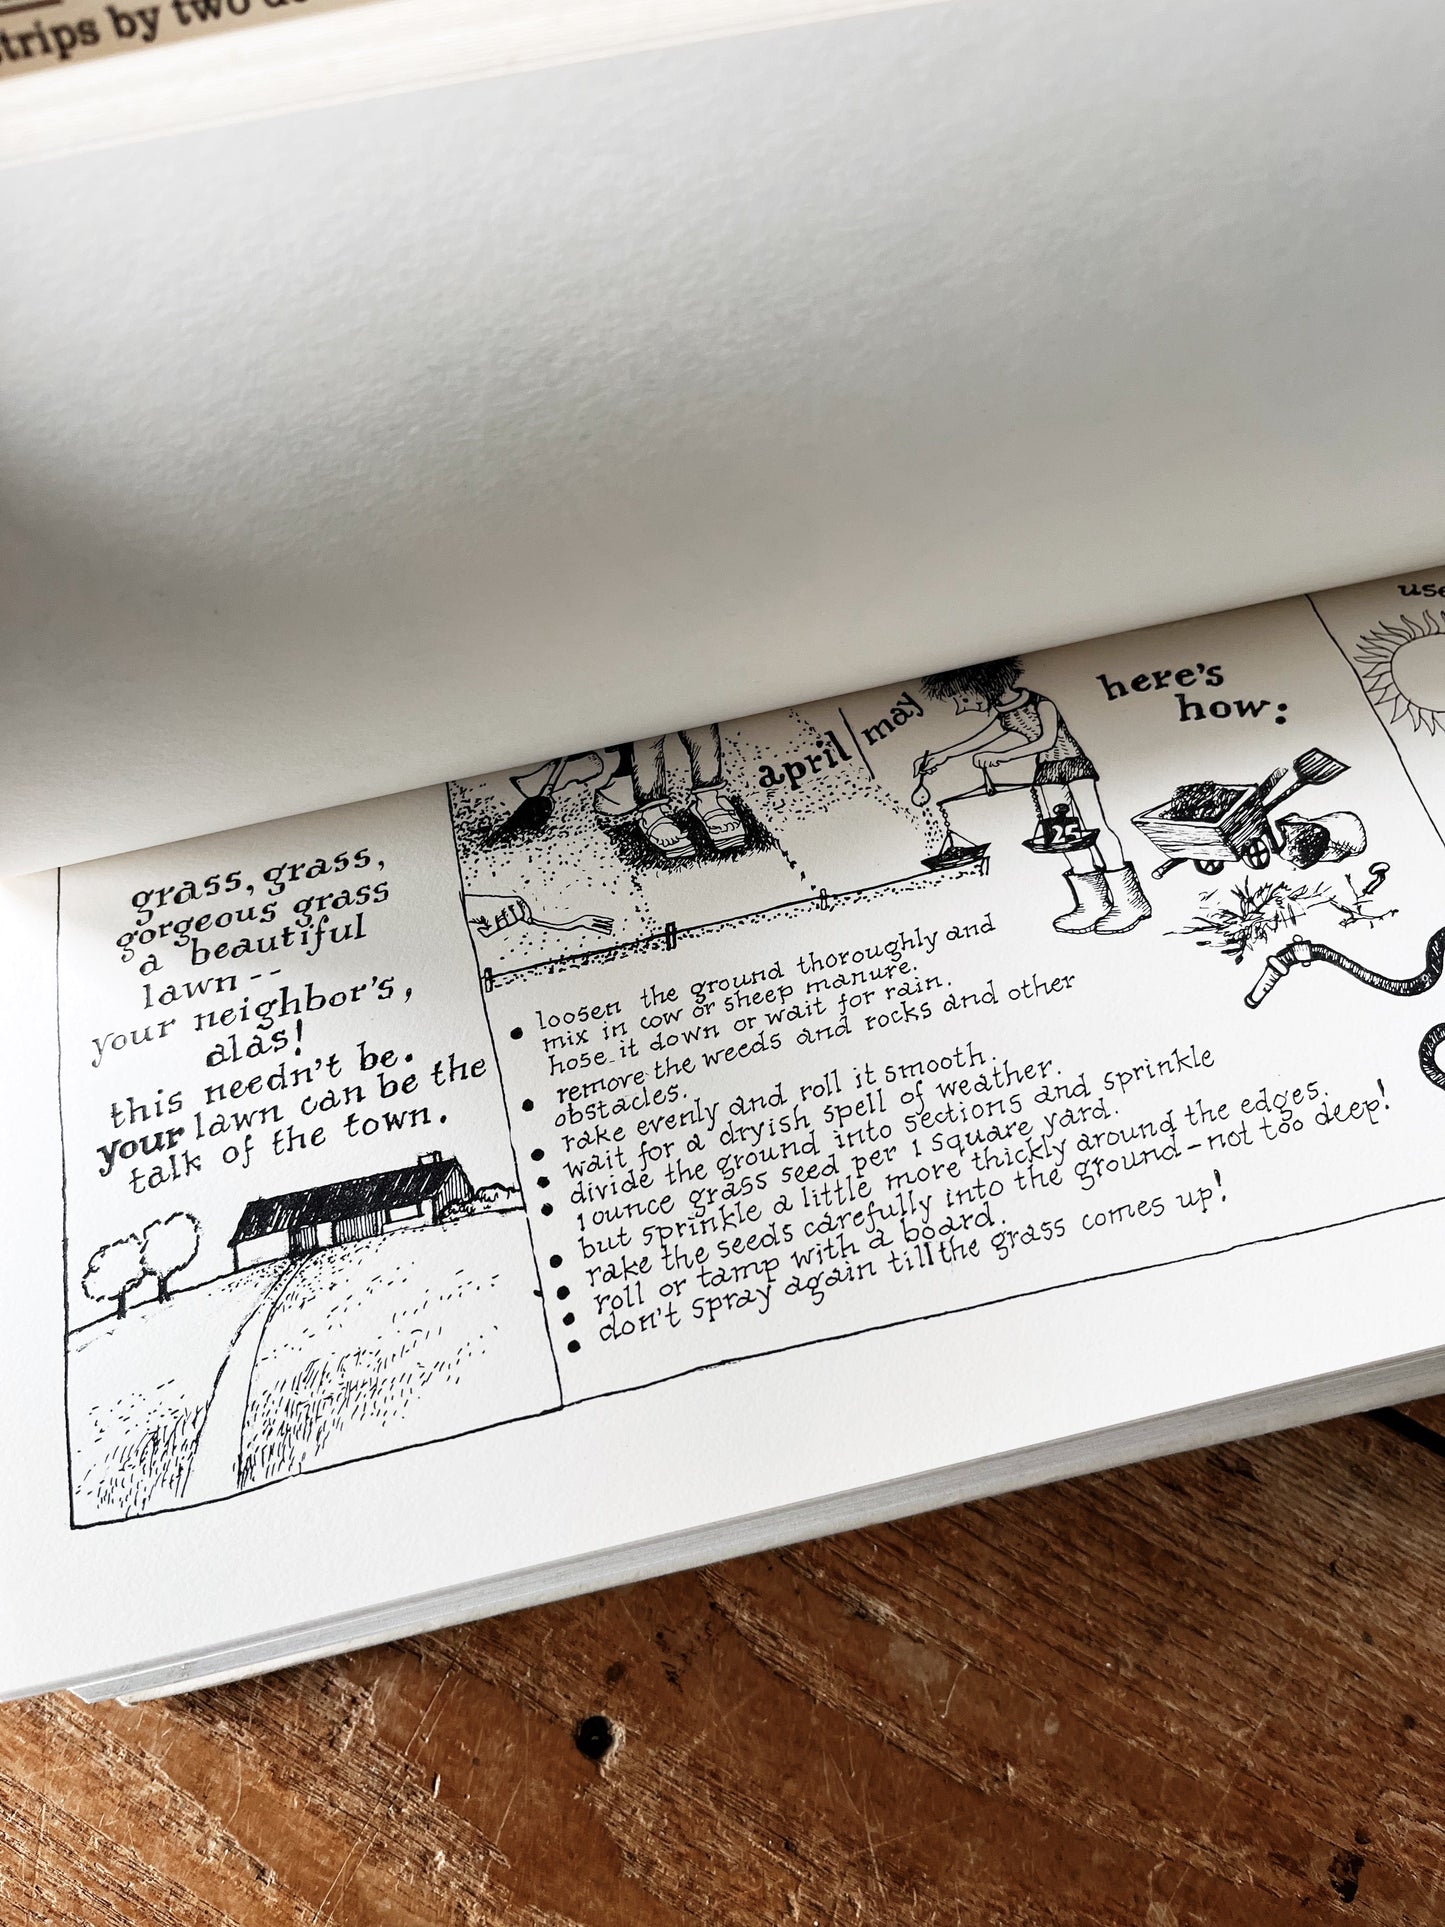 trips by two
grass, grass,
gorgeous grass
a beautiful
lawn --
your neighbor's,
alas!
this needn't be.
your lawn can be the
talk of the town.
april/may
25
here's
how:
• loosen the ground thoroughly and
mix in cow or sheep manure.
hose it down or wait for rain.
• remove the weeds and rocks and other
obstacles.
• rake evenly and roll it smooth.
• wait for a dryish spell of weather.
• divide the ground into sections and sprinkle
1 ounce grass seed per 1 square yard.
but sprinkle a little more thickly around the edges.
• rake the seeds carefully into the ground - not too deep!
• roll or tamp with a board.
• don't spray again till the grass comes up!
use